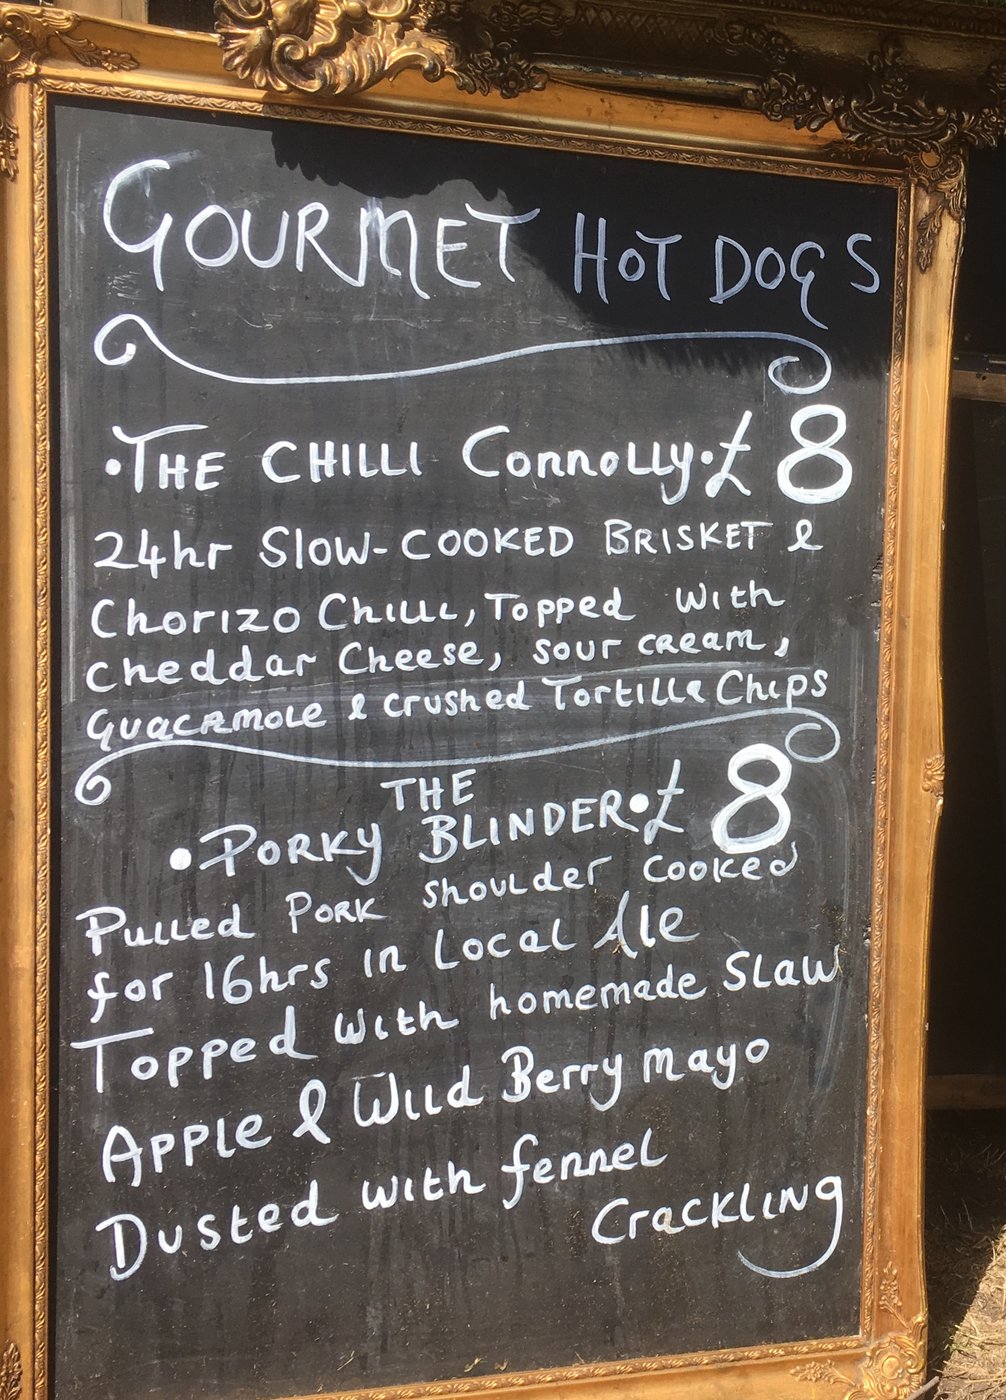 GOURMET HOT DOGS
•THE CHILLI Connolly•£8
24hr Slow-COOKED BRISKET &
Chorizo Chilli, Topped with
Cheddar Cheese, sour cream,
Guacamole & crushed Tortilla Chips
THE
•PORKY BLINDER•£8
Pulled Pork shoulder cooked
for 16hrs in Local Ale
Topped with homemade Slaw
Apple & Wild Berry mayo
Dusted with fennel
Crackling